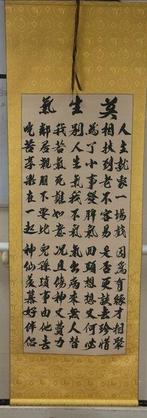 莫生氣
人生就象一場戲 因為有緣才相聚
相扶到老不容易 是否更該去珍惜
為了小事發脾氣 回頭想想又何必
別人生氣我不氣 氣出病來無人替
我若氣死誰如意 況且傷神又費力
鄰居親朋不要比 兒孫瑣事由他去
吃苦享樂在一起 神仙羨慕好伴侶